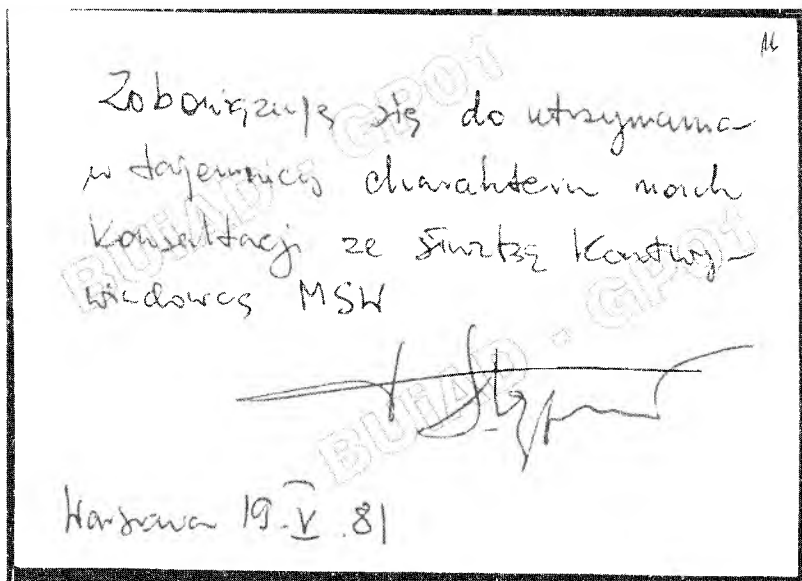 11
Zobowiązuję się do utrzymania
w tajemnicy charakteru moich
Konsultacji ze służbą Kontrwy-
wiadowczą MSW
Warszawa 19.V.81
BUiAD - GP01
BUiAD - GP01